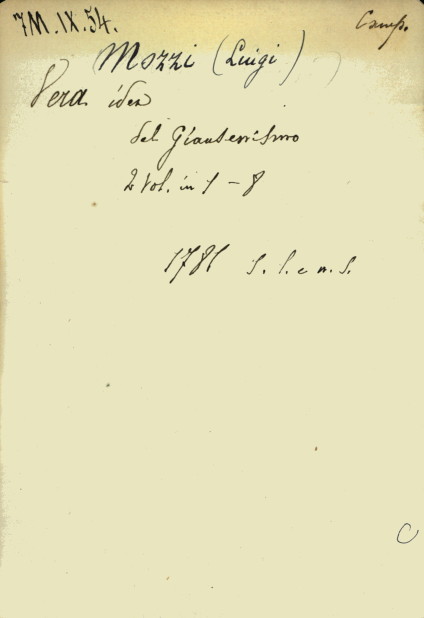 7M.IX.54.
Camp.
Mozzi (Luigi)
Vera idea
del Giansenismo
2 Vol. in 1 - 8
1781 S. l. e n. S.
C